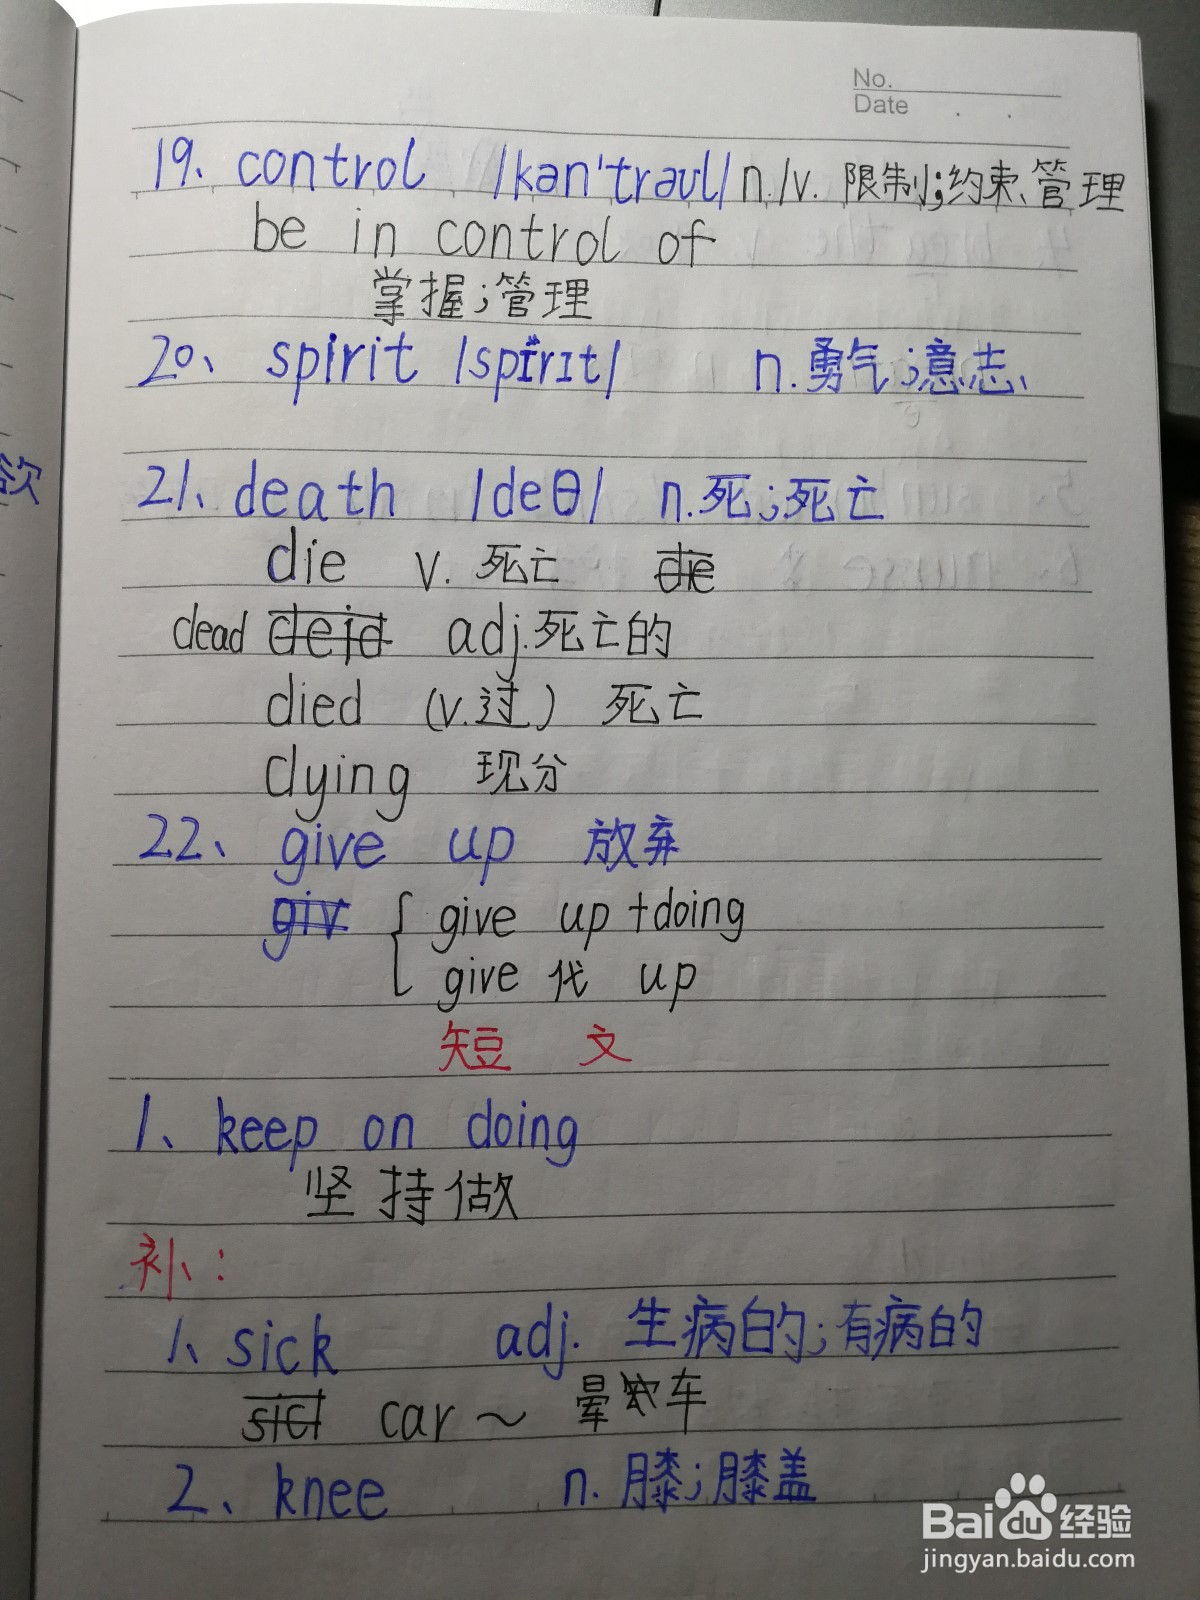 No.
Date
19、control /kən'trəʊl/ n./v. 限制;约束、管理
be in control of
掌握;管理
20、spirit /spɪrɪt/ n.勇气;意志、
欲
21、death /deθ/ n.死;死亡
die v. 死亡 die
dead deid adj.死亡的
died (v.过) 死亡
dying 现分
22、give up 放弃
giv { give up +doing
give 代 up
短 文
1、keep on doing
坚持做
补:
1、sick adj. 生病的;有病的
sicl car ~ 晕车
2、knee n. 膝;膝盖
Baidu经验
jingyan.baidu.com